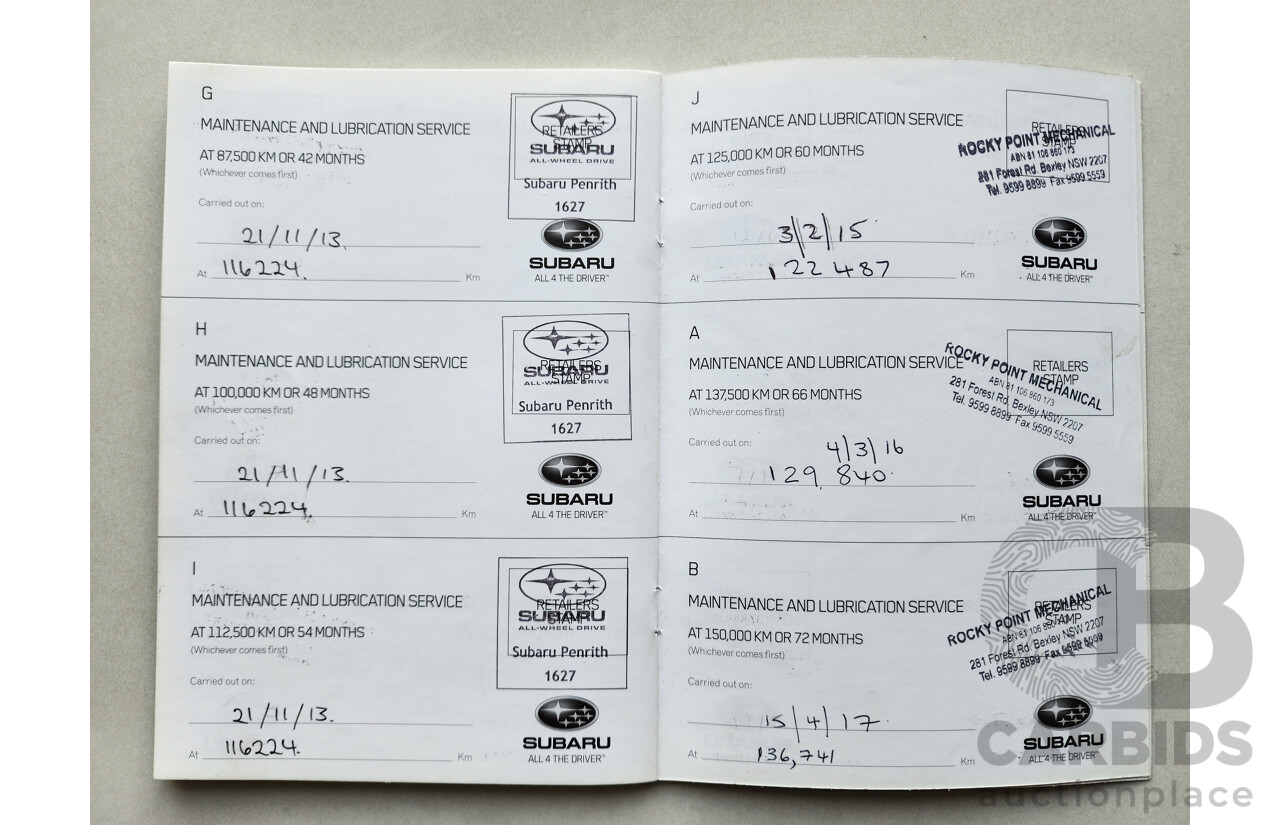 G
MAINTENANCE AND LUBRICATION SERVICE
AT 87,500 KM OR 42 MONTHS
(Whichever comes first)
Carried out on:
21/11/13.
At 116224. Km
RETAILERS
STAMP
SUBARU
ALL-WHEEL DRIVE
Subaru Penrith
1627
SUBARU
ALL 4 THE DRIVER™
H
MAINTENANCE AND LUBRICATION SERVICE
AT 100,000 KM OR 48 MONTHS
(Whichever comes first)
Carried out on:
21/11/13.
At 116224. Km
RETAILERS
STAMP
SUBARU
ALL-WHEEL DRIVE
Subaru Penrith
1627
SUBARU
ALL 4 THE DRIVER™
I
MAINTENANCE AND LUBRICATION SERVICE
AT 112,500 KM OR 54 MONTHS
(Whichever comes first)
Carried out on:
21/11/13.
At 116224. Km
RETAILERS
STAMP
SUBARU
ALL-WHEEL DRIVE
Subaru Penrith
1627
SUBARU
ALL 4 THE DRIVER™
J
MAINTENANCE AND LUBRICATION SERVICE
AT 125,000 KM OR 60 MONTHS
(Whichever comes first)
Carried out on:
3/2/15
At 122 487 Km
RETAILERS
STAMP
ROCKY POINT MECHANICAL
ABN 81 106 860 173
281 Forest Rd. Bexley NSW 2207
Tel. 9599 8899 Fax 9599 5559
SUBARU
ALL 4 THE DRIVER™
A
MAINTENANCE AND LUBRICATION SERVICE
AT 137,500 KM OR 66 MONTHS
(Whichever comes first)
Carried out on:
4/3/16
129 840
At Km
RETAILERS
STAMP
ROCKY POINT MECHANICAL
ABN 81 106 860 173
281 Forest Rd. Bexley NSW 2207
Tel. 9599 8899 Fax 9599 5559
SUBARU
ALL 4 THE DRIVER™
B
MAINTENANCE AND LUBRICATION SERVICE
AT 150,000 KM OR 72 MONTHS
(Whichever comes first)
Carried out on:
15/4/17
At 136,741 Km
RETAILERS
STAMP
ROCKY POINT MECHANICAL
ABN 81 106 860
281 Forest Rd. Bexley NSW 2207
Tel. 9599 8899 Fax
SUBARU
ALL 4 THE DRIVER™
CARBIDS
auctionplace